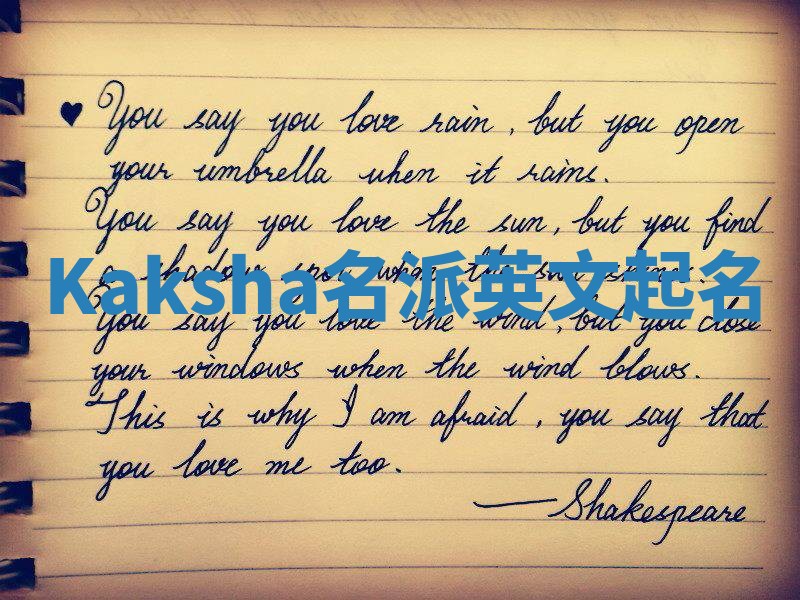 ♥ You say you love rain, but you open
your umbrella when it rains.
You say you love the sun, but you find
a shadow spot when the sun shines.
Kaksha名派英文起名
You say you love the wind, but you close
your windows when the wind blows.
This is why I am afraid, you say that
you love me too.
—Shakespeare